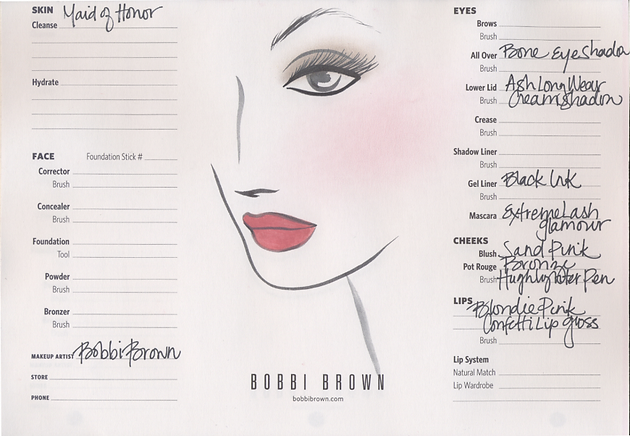 SKIN Maid of Honor
Cleanse
Hydrate
FACE Foundation Stick #
Corrector
Brush
Concealer
Brush
Foundation
Tool
Powder
Brush
Bronzer
Brush
MAKEUP ARTIST Bobbi Brown
STORE
PHONE
BOBBI BROWN
bobbibrown.com
EYES
Brows
Brush
All Over Bone Eyeshadow
Brush
Lower Lid Ash Long Wear
Brush Creamshadow
Crease
Brush
Shadow Liner
Brush
Gel Liner Black Ink
Brush
Mascara Extreme Lash
glamour
CHEEKS
Blush Sand Pink
Pot Rouge Bronze
Brush Highlighter Pen
LIPS Blondie Pink
Confetti Lip gloss
Brush
Lip System
Natural Match
Lip Wardrobe